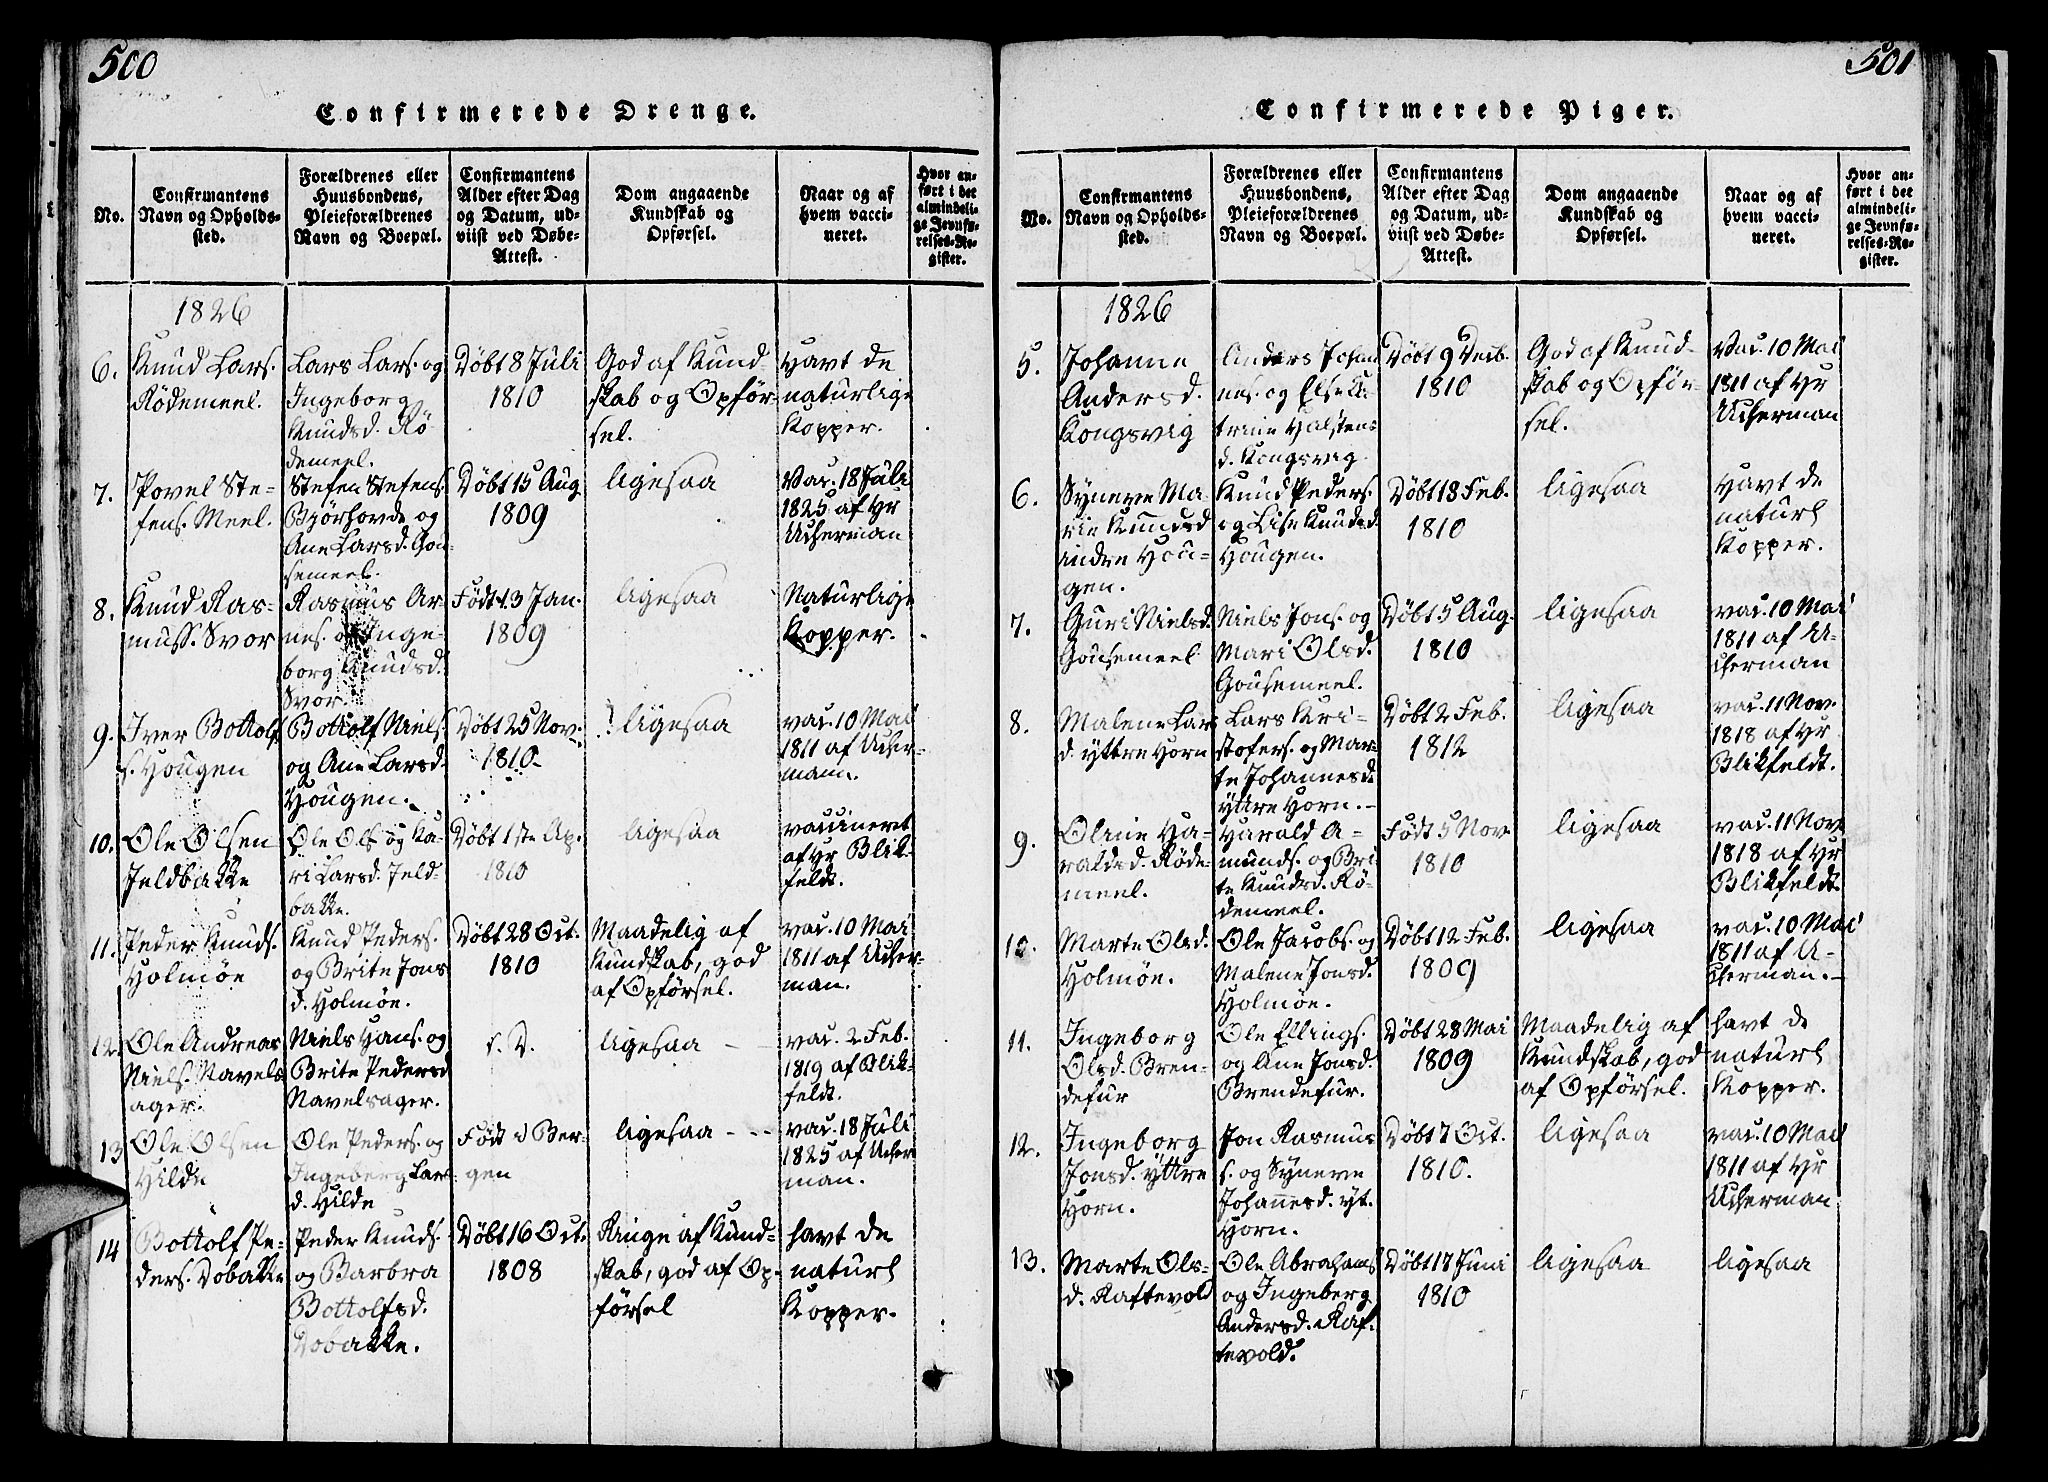 500
Confirmerede Drenge.
No.
Confirmantens
Navn og Opholds-
sted.
Forældrenes eller
Huusbondens,
Pleieforældrenes
Navn og Boepæl.
Confirmantens
Alder efter Dag
og Datum, ud-
viist ved Døbe-
Attest.
Dom angaaende
Kundskab og
Opførsel.
Naar og af
hvem vacci-
neret.
Hvor an-
ført i det
almindeli-
ge Jevnfø-
relses-Re-
gister.
1826
6.
Knud Lars.
Rödemeel.
Lars Lars. og
Ingeborg
Knudsd. Rö-
demeel.
Döbt 8 Juli
1810
God af Kund-
skab og Opför-
sel.
havt de
naturlige
Kopper.
7.
Povel Ste-
fens. Meel.
Stefen Stefens.
Bjørhovde og
Ane Larsd. Gou-
semeel.
Döbt 15 Aug.
1809
ligesaa
Vac. 18 Juli
1825 af Hr
Ucherman
8.
Knud Ras-
muss. Svor
Rasmus Ar-
nes. og Inge-
borg Knudsd.
Svor.
Født 13 Jan.
1809
ligesaa
Naturlige
Kopper.
9.
Iver Bottolf
s. Hougen
Bottolf Niels.
og Ane Larsd.
Hougen.
Döbt 25 Nov.
1810
ligesaa
vac. 10 Mai
1811 af Ucher-
mann.
10.
Ole Olsen
Jeldbakke
Ole Ols og Ka-
ri Larsd. Jeld-
bakke.
Döbt 1ste Ap.
1810
ligesaa
vaccineret
af Hr Blik-
feldt.
11.
Peder Knuds.
Holmøe
Knud Peders.
og Brite Jons
d. Holmøe.
Döbt 28 Oct.
1810
Maadelig af
Kundskab, god
af Opførsel.
vac. 10 Mai
1811 af Ucher-
man.
12.
Ole Andreas
Niels. Navels
ager.
Niels Hans. og
Brite Pedersd
Navelsager.
s. D.
ligesaa
vac. 2 Feb.
1819 af Blik-
feldt.
13
Ole Olsen
Hilde
Ole Peders. og
Ingeberg Lars
d. Hilde
Født i Ber-
gen
ligesaa
vac. 18 Juli
1825 af Ucher
man.
14
Bottolf Pe-
ders. Dobakke
Peder Knuds.
og Barbra
Bottolfsd.
Dobakke.
Döbt 16 Oct.
1808
Ringe af Kund-
skab, god af Op-
førsel
havt de
naturl
Kopper.
501
Confirmerede Piger.
No.
Confirmantens
Navn og Opholds-
sted.
Forældrenes eller
Huusbondens,
Pleieforældrenes
Navn og Boepæl.
Confirmantens
Alder efter Dag
og Datum, ud-
viist ved Døbe-
Attest.
Dom angaaende
Kundskab og
Opførsel.
Naar og af
hvem vacci-
neret.
Hvor an-
ført i det
almindeli-
ge Jevnfø-
relses-Re-
gister.
1826
5.
Johanne
Andersd.
Kongsvig
Anders Johan
nes. og Else Ka-
trine Halstens
d. Kongsvig
Döbt 9 Decb.
1810
God af Kund-
skab og Opför-
sel.
Vac. 10 Mai
1811 af Hr
Ucherman
6.
Syneve Ma-
rie Knudsd
indre Hou-
gen.
Knud Peders.
og Lise Knudsd.
Hougen.
Döbt 18 Feb.
1810
ligesaa
Havt de
naturl
Kopper.
7.
Guri Nielsd.
Gousemeel
Niels Jons. og
Mari Olsd.
Gousemeel.
Döbt 5 Aug.
1810
ligesaa
vac. 10 Mai
1811 af U-
cherman
8.
Malene Lars
d. yttre Horn
Lars Kri-
stofers. og Mar-
te Johannesd.
yttre Horn.
Döbt 2 Feb.
1812
ligesaa
vac. 11 Nov.
1818 af Hr
Blikfeldt.
9.
Oline Ha-
raldsd. Röde-
meel.
Harald A-
munds. og Bri
te Knudsd. Rö-
demeel.
Født 5 Nov.
1810
ligesaa
vac. 11 Nov.
1818 af Hr
Blikfeldt.
10.
Marte Olsd.
Holmøe.
Ole Jacobs. og
Malene Jonsd.
Holmøe.
Döbt 12 Feb.
1809
ligesaa
vac. 10 Mai
1811 af U-
cherman.
11.
Ingeborg
Olsd. Bren-
defur
Ole Ellings.
og Ane Jonsd.
Brendefur.
Döbt 28 Mai
1809
Maadelig af
Kundskab, god
af Opförsel.
havt de
naturl
Kopper.
12.
Ingeborg
Jonsd. yttre
Horn.
Jon Rasmus
s. og Syneve
Johannesd. yt.
Horn.
Döbt 7 Oct.
1810.
ligesaa
vac. 10 Mai
1811 af Hr
Ucherman
13.
Marte Ols-
d. Raftevold
Ole Abrahams
og Ingeberg
Andersd. Raf-
tevold.
Döbt 17 Juni
1810
ligesaa
ligesaa